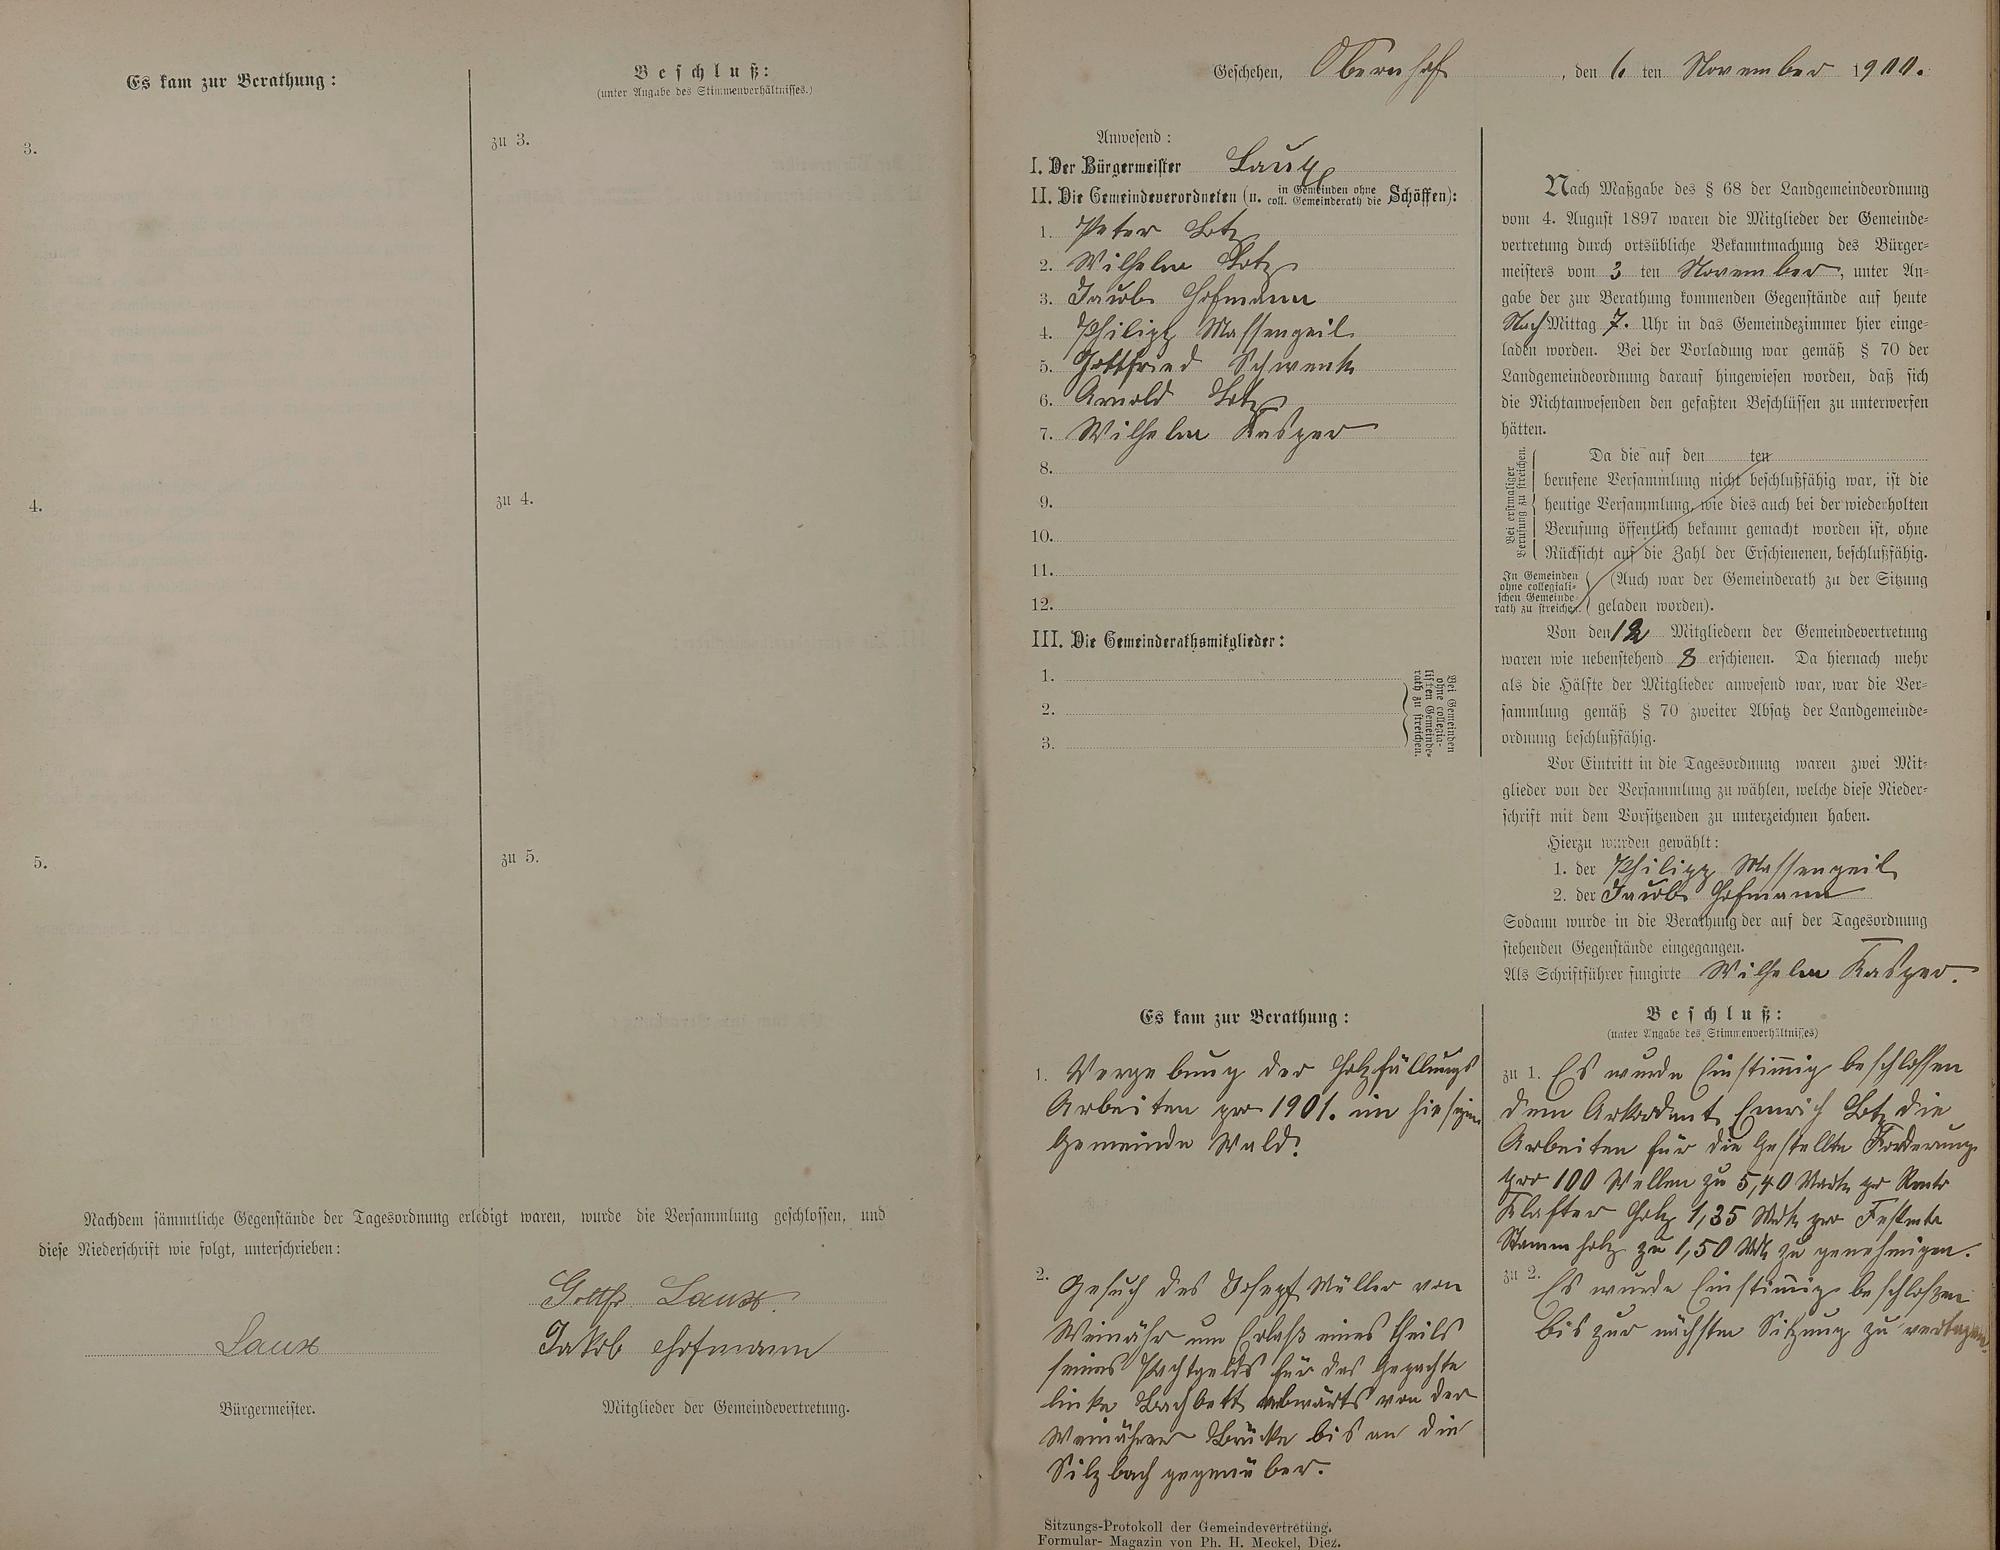 Es kam zur Berathung:
Beschluß:
(unter Angabe des Stimmenverhältnisses.)
3.
zu 3.
4.
zu 4.
5.
zu 5.
Nachdem sämmtliche Gegenstände der Tagesordnung erledigt waren, wurde die Versammlung geschlossen, und
diese Niederschrift wie folgt, unterschrieben:
Laux
Laux
Jakob Hofmann
Bürgermeister.
Mitglieder der Gemeindevertretung.
Geschehen, Obernhof, den 6 ten November 1900.
Anwesend:
I. Der Bürgermeister Laux
II. Die Gemeindeverordneten (u. in Gemeinden ohne coll. Gemeinderath die Schöffen):
1. Peter Lotz
2. Wilhelm Lotz
3. Jacob Hofmann
4. Philipp Massengeil
5. Gottfried Schwenk
6. Arnold Lotz
7. Wilhelm Kasper
8.
9.
10.
11.
12.
III. Die Gemeinderathsmitglieder:
1.
2.
3.
Bei Gemeinden
ohne collegia-
lischen Gemeinde-
rath zu streichen.
Nach Maßgabe des § 68 der Landgemeindeordnung
vom 4. August 1897 waren die Mitglieder der Gemeinde-
vertretung durch ortsübliche Bekanntmachung des Bürger-
meisters vom 3 ten November, unter An-
gabe der zur Berathung kommenden Gegenstände auf heute
Nach Mittag 7. Uhr in das Gemeindezimmer hier einge-
laden worden. Bei der Vorladung war gemäß § 70 der
Landgemeindeordnung darauf hingewiesen worden, daß sich
die Nichtanwesenden den gefaßten Beschlüssen zu unterwerfen
hätten.
Bei erstmaliger
Berufung zu streichen.
Da die auf den ten
berufene Versammlung nicht beschlußfähig war, ist die
heutige Versammlung, wie dies auch bei der wiederholten
Berufung öffentlich bekannt gemacht worden ist, ohne
Rücksicht auf die Zahl der Erschienenen, beschlußfähig.
In Gemeinden
ohne collegiali-
schen Gemeinde-
rath zu streichen.
(Auch war der Gemeinderath zu der Sitzung
geladen worden).
Von den 12 Mitgliedern der Gemeindevertretung
waren wie nebenstehend 8 erschienen. Da hiernach mehr
als die Hälfte der Mitglieder anwesend war, war die Ver-
sammlung gemäß § 70 zweiter Absatz der Landgemeinde-
ordnung beschlußfähig.
Vor Eintritt in die Tagesordnung waren zwei Mit-
glieder von der Versammlung zu wählen, welche diese Nieder-
schrift mit dem Vorsitzenden zu unterzeichnen haben.
Hierzu wurden gewählt:
1. der Philipp Massengeil
2. der Jacob Hofmann
Sodann wurde in die Berathung der auf der Tagesordnung
stehenden Gegenstände eingegangen.
Als Schriftführer fungirte Wilhelm Kasper.
Es kam zur Berathung:
1. Vergebung der Holzfällungs
Arbeiten pro 1901. im hiesigen
Gemeinde Wald.
2. Gesuch des Josepf Müller von
Weinähr um Erlaß eines theils
seines Pachtgelds für das Gepachte
linke Bachbett abwärts von der
Weinährer Brücke bis an die
Silzbach gegenüber.
Beschluß:
(unter Angabe des Stimmenverhältnisses)
zu 1. Es wurde Einstimig beschlossen
dem Arkordant Emrich Lotz die
Arbeiten für die Gestellte Forderung
pro 100 Wellen zu 5,40 Mark pr
Klafter Holz 1,35 Mk pro Festmtr
Stammholz zu 1,50 Mk zu genehmigen.
zu 2. Es wurde Einstimig beschloßen
bis zur nächsten Sitzung zu vertagen.
Sitzungs-Protokoll der Gemeindevertretung.
Formular- Magazin von Ph. H. Meckel, Diez.